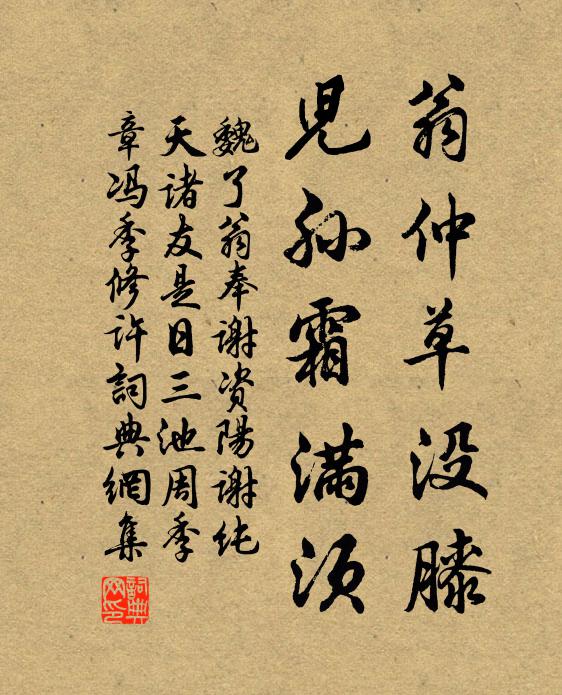 翁仲草没膝
兒孙霜满须
魏了翁奉谢资陽谢纯
天诸友是日三池周季
章冯季修许詞典網集
詞典网印